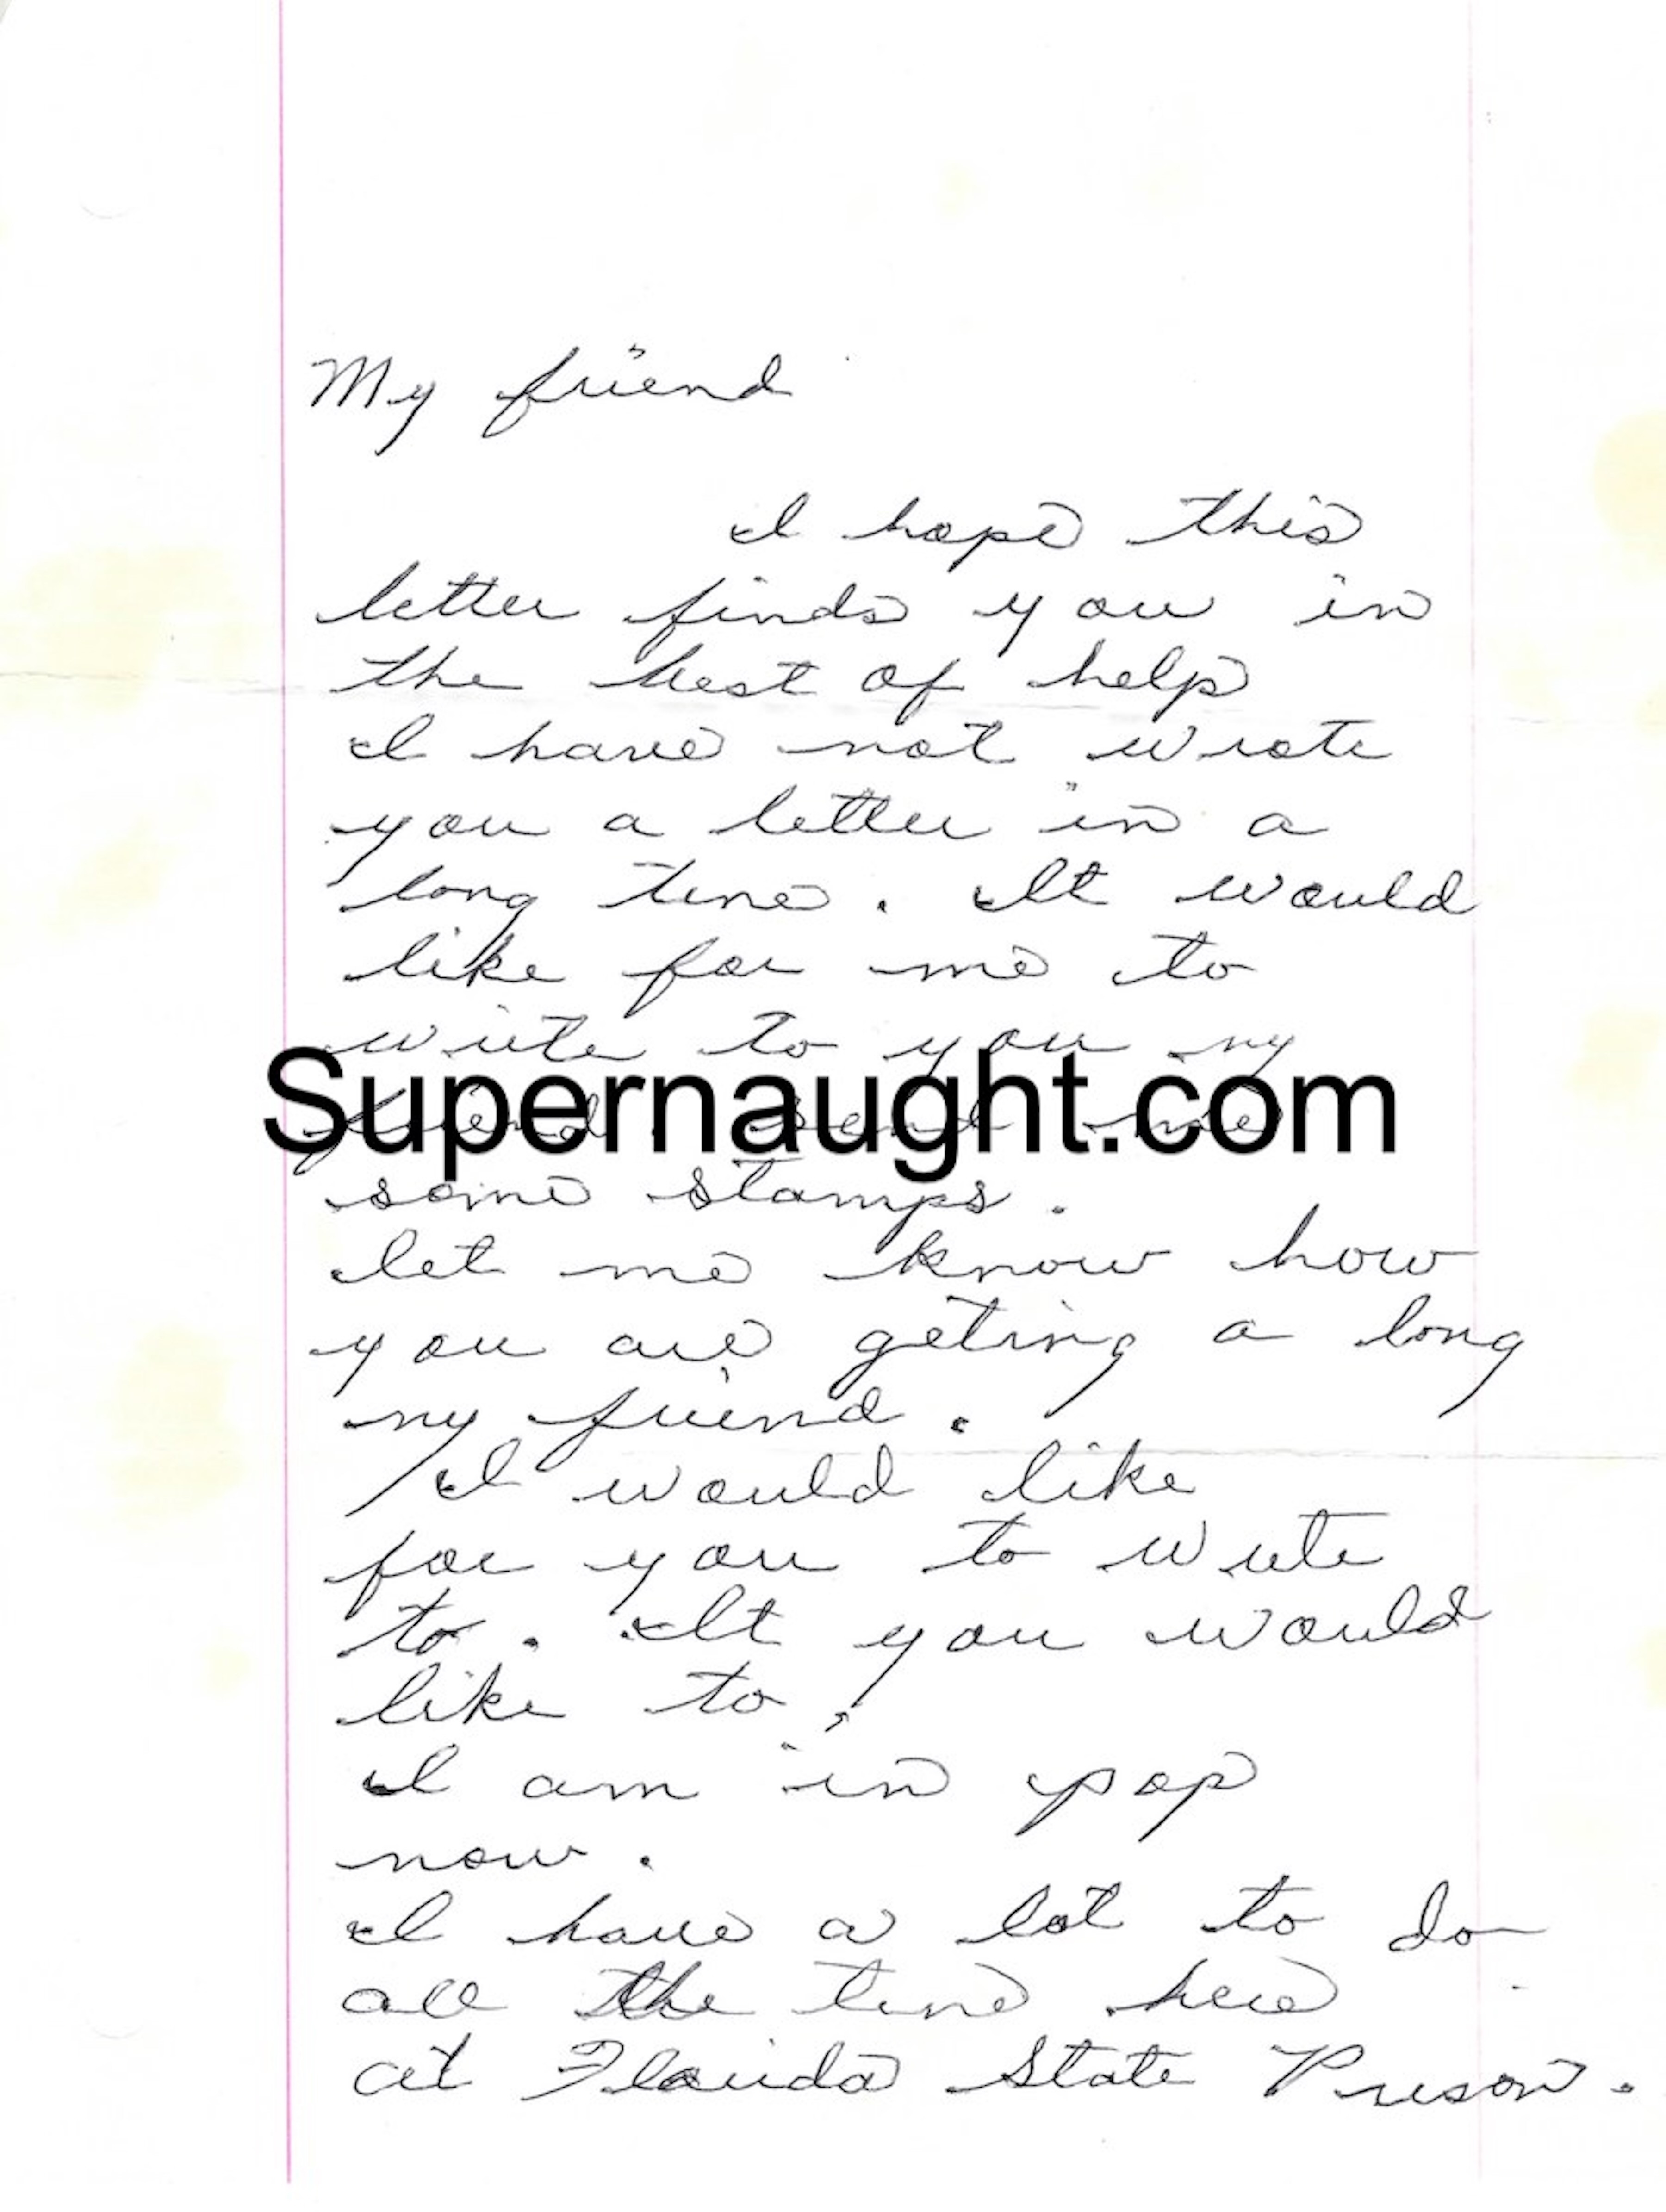 My friend
I hope this
letter finds you in
the best of help
I have not wrote
you a letter in a
long time. It would
like for me to
write to you my
Supernaught.com
friend. Send me
some stamps.
let me know how
you are geting a long
my friend.
I would like
for you to write
to. It you would
like to,
I am in pop
now.
I have a lot to do
all the time here
at Florida State Prison.